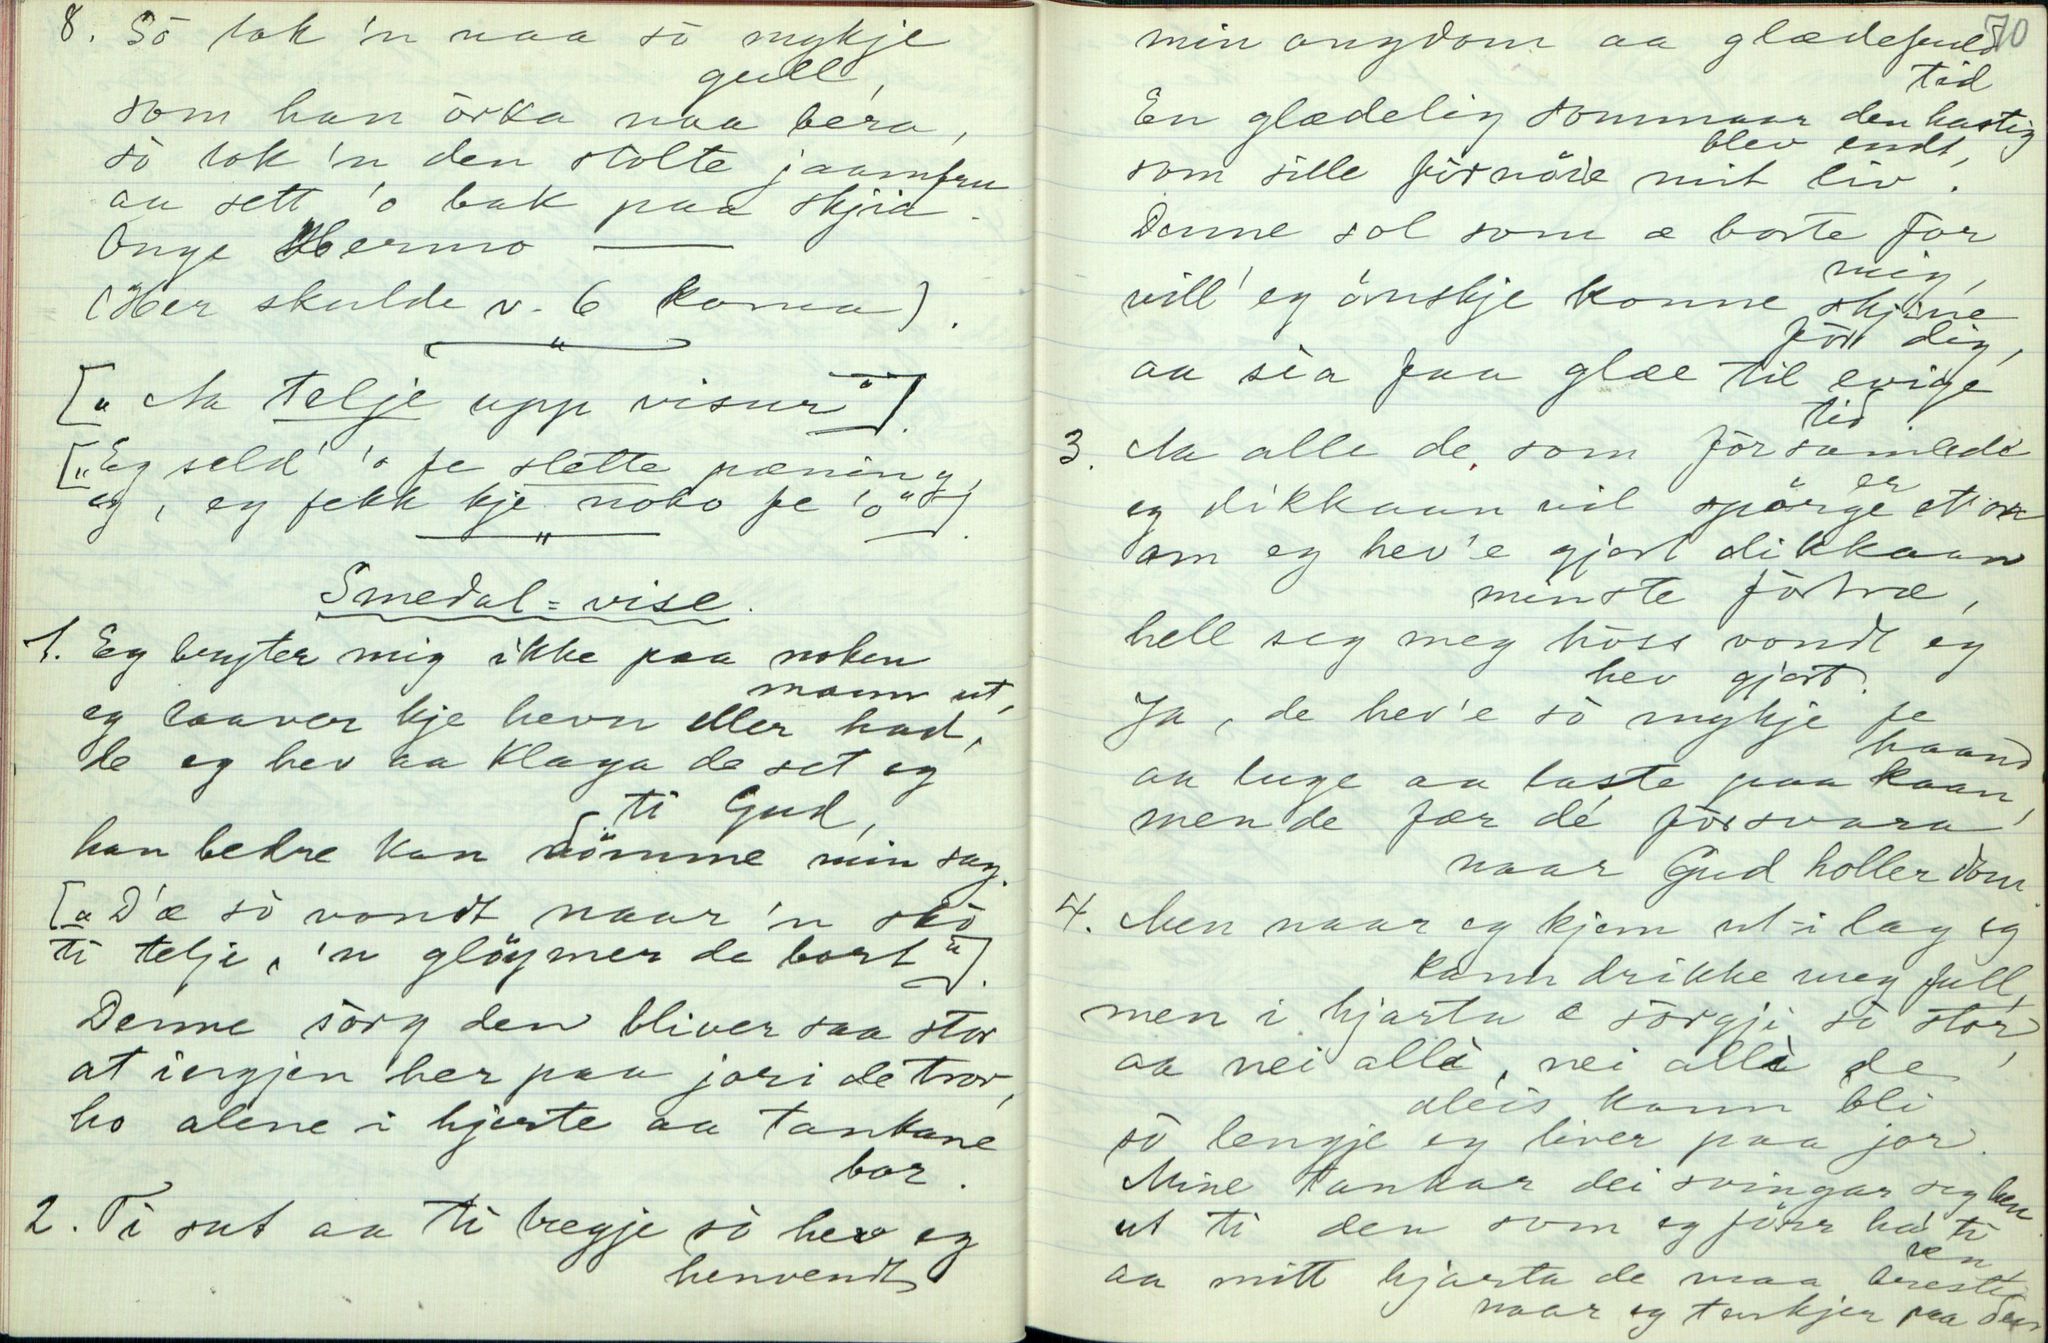 8. Sò tok 'n naa sò mykje
gull,
som han òrka naa bera,
sò tok 'n den stolte jaamfru
aa sett 'o bak paa skjia.
Onge Hermo ———
(Her skulde v. 6 koma).
["Aa telje upp visur"].
["Eg seld' 'o fe slette pæning,
eg, eg fekk kje noko fe 'o"].
Smedal=vise.
1. Eg bryter mig ikke paa noken
mann ut,
eg laaver kje hevn eller had,
de eg hev aa klaga de set eg
ti Gud,
han bedre kan dömme min sag.
["D'æ so vondt naar 'n skò
ti telje, 'n glöymer de bort"].
Denne sòrg den bliver saa stor
at ingjen her paa jori de tror,
ho alene i hjerte aa tankane
bor.
2. Ti sut aa ti tregje sò hev eg
henvendt
70
min ongdom aa glædefuld
tid
En glædelig sommaar den hastig
blev endt,
som sille fòrnöie mit liv.
Denne sol som æ borte for
mig,
vill' eg önskje konne skjine
för dig,
aa sia faa glæe til evige
tid
3. Aa alle de som fòrsamlede
er
eg dikkaan vil spörge etter
om eg hev'e gjort dikkaan
minste förtræ,
hell seg meg hòss vondt eg
hev gjort.
Ja, de hev'e sò mykje fe
haand
aa luge aa laste paa kaan,
men de fær dé fòrsvara
naar Gud holler dom
4. Men naar eg kjem ut i lag eg
kann drikke meg full,
men i hjarta æ sòrgji sò stor,
aa nei alli, nei alli de
aleis kann bli
sò lengje eg liver paa jor.
Mine tankar dei svingar seg hen
ut ti den som eg förr ha' ti
ven
aa mitt hjarta de maa breste
naar eg tenkjer paa den